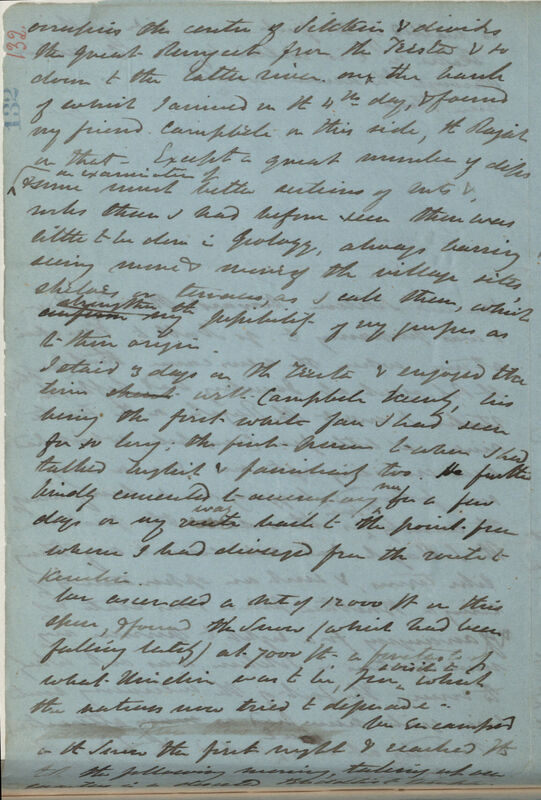 132
occupies the centre of Sikkim & divides
the great Rungeet from the Teesta & so
down to the latter river on the bank
of which I arrived on the 4th day, & found
my friend Campbell on this side, the Rajah
on that - Except a great number of dips
& an examination of
some much better sections of mts &
rocks than I had before seen there was
little to be done in Geology, always barring
seeing more & more of the village sites
shelves or terraces, as I call them, which
strengthen the
confirm my probability of my guesses as
to their origin.
I staid 3 days on the Teesta & enjoyed the
time with Campbell keenly, his
being the first white face I had seen
for so long: the first person to whom I had
talked english & familiarly too. He further
kindly consented to accompany me for a few
way
days on my route back to the point from
where I had diverged from the route to

We ascended a mt of 12000 ft on this
spur, & found the Snow (which had been
falling lately) at 7000 ft a foretaste of
what was to be, from a visit to which
the natives now tried to dissuade -
We Encamped
on the Snow the first night & reached the
the following morning, taking